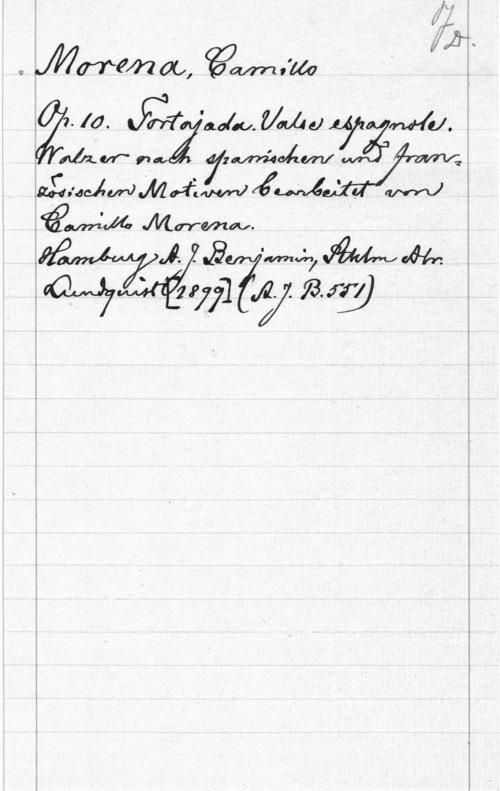 Morena, Camillo
Op. 10. Tortajada. Valse espagnole.
Walzer nach spanischen und fran=
zösischen Motiven bearbeitet von
Camillo Morena.
Hamburg, A. J. Benjamin, Sthlm Abr.
Lundquist [1899] (A. J. B. 551)